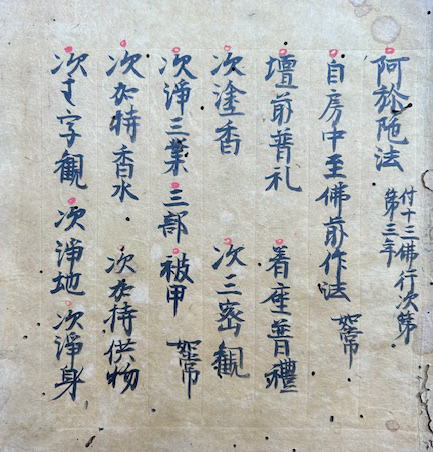 阿弥陁法
付十三佛行次第
第三年
自房中至佛前作法 如常
壇前普礼 着座普禮
次塗香 次三密觀
次淨三業 三部 被甲 如常
次加持香水 次加持供物
次字觀 次淨地 次淨身